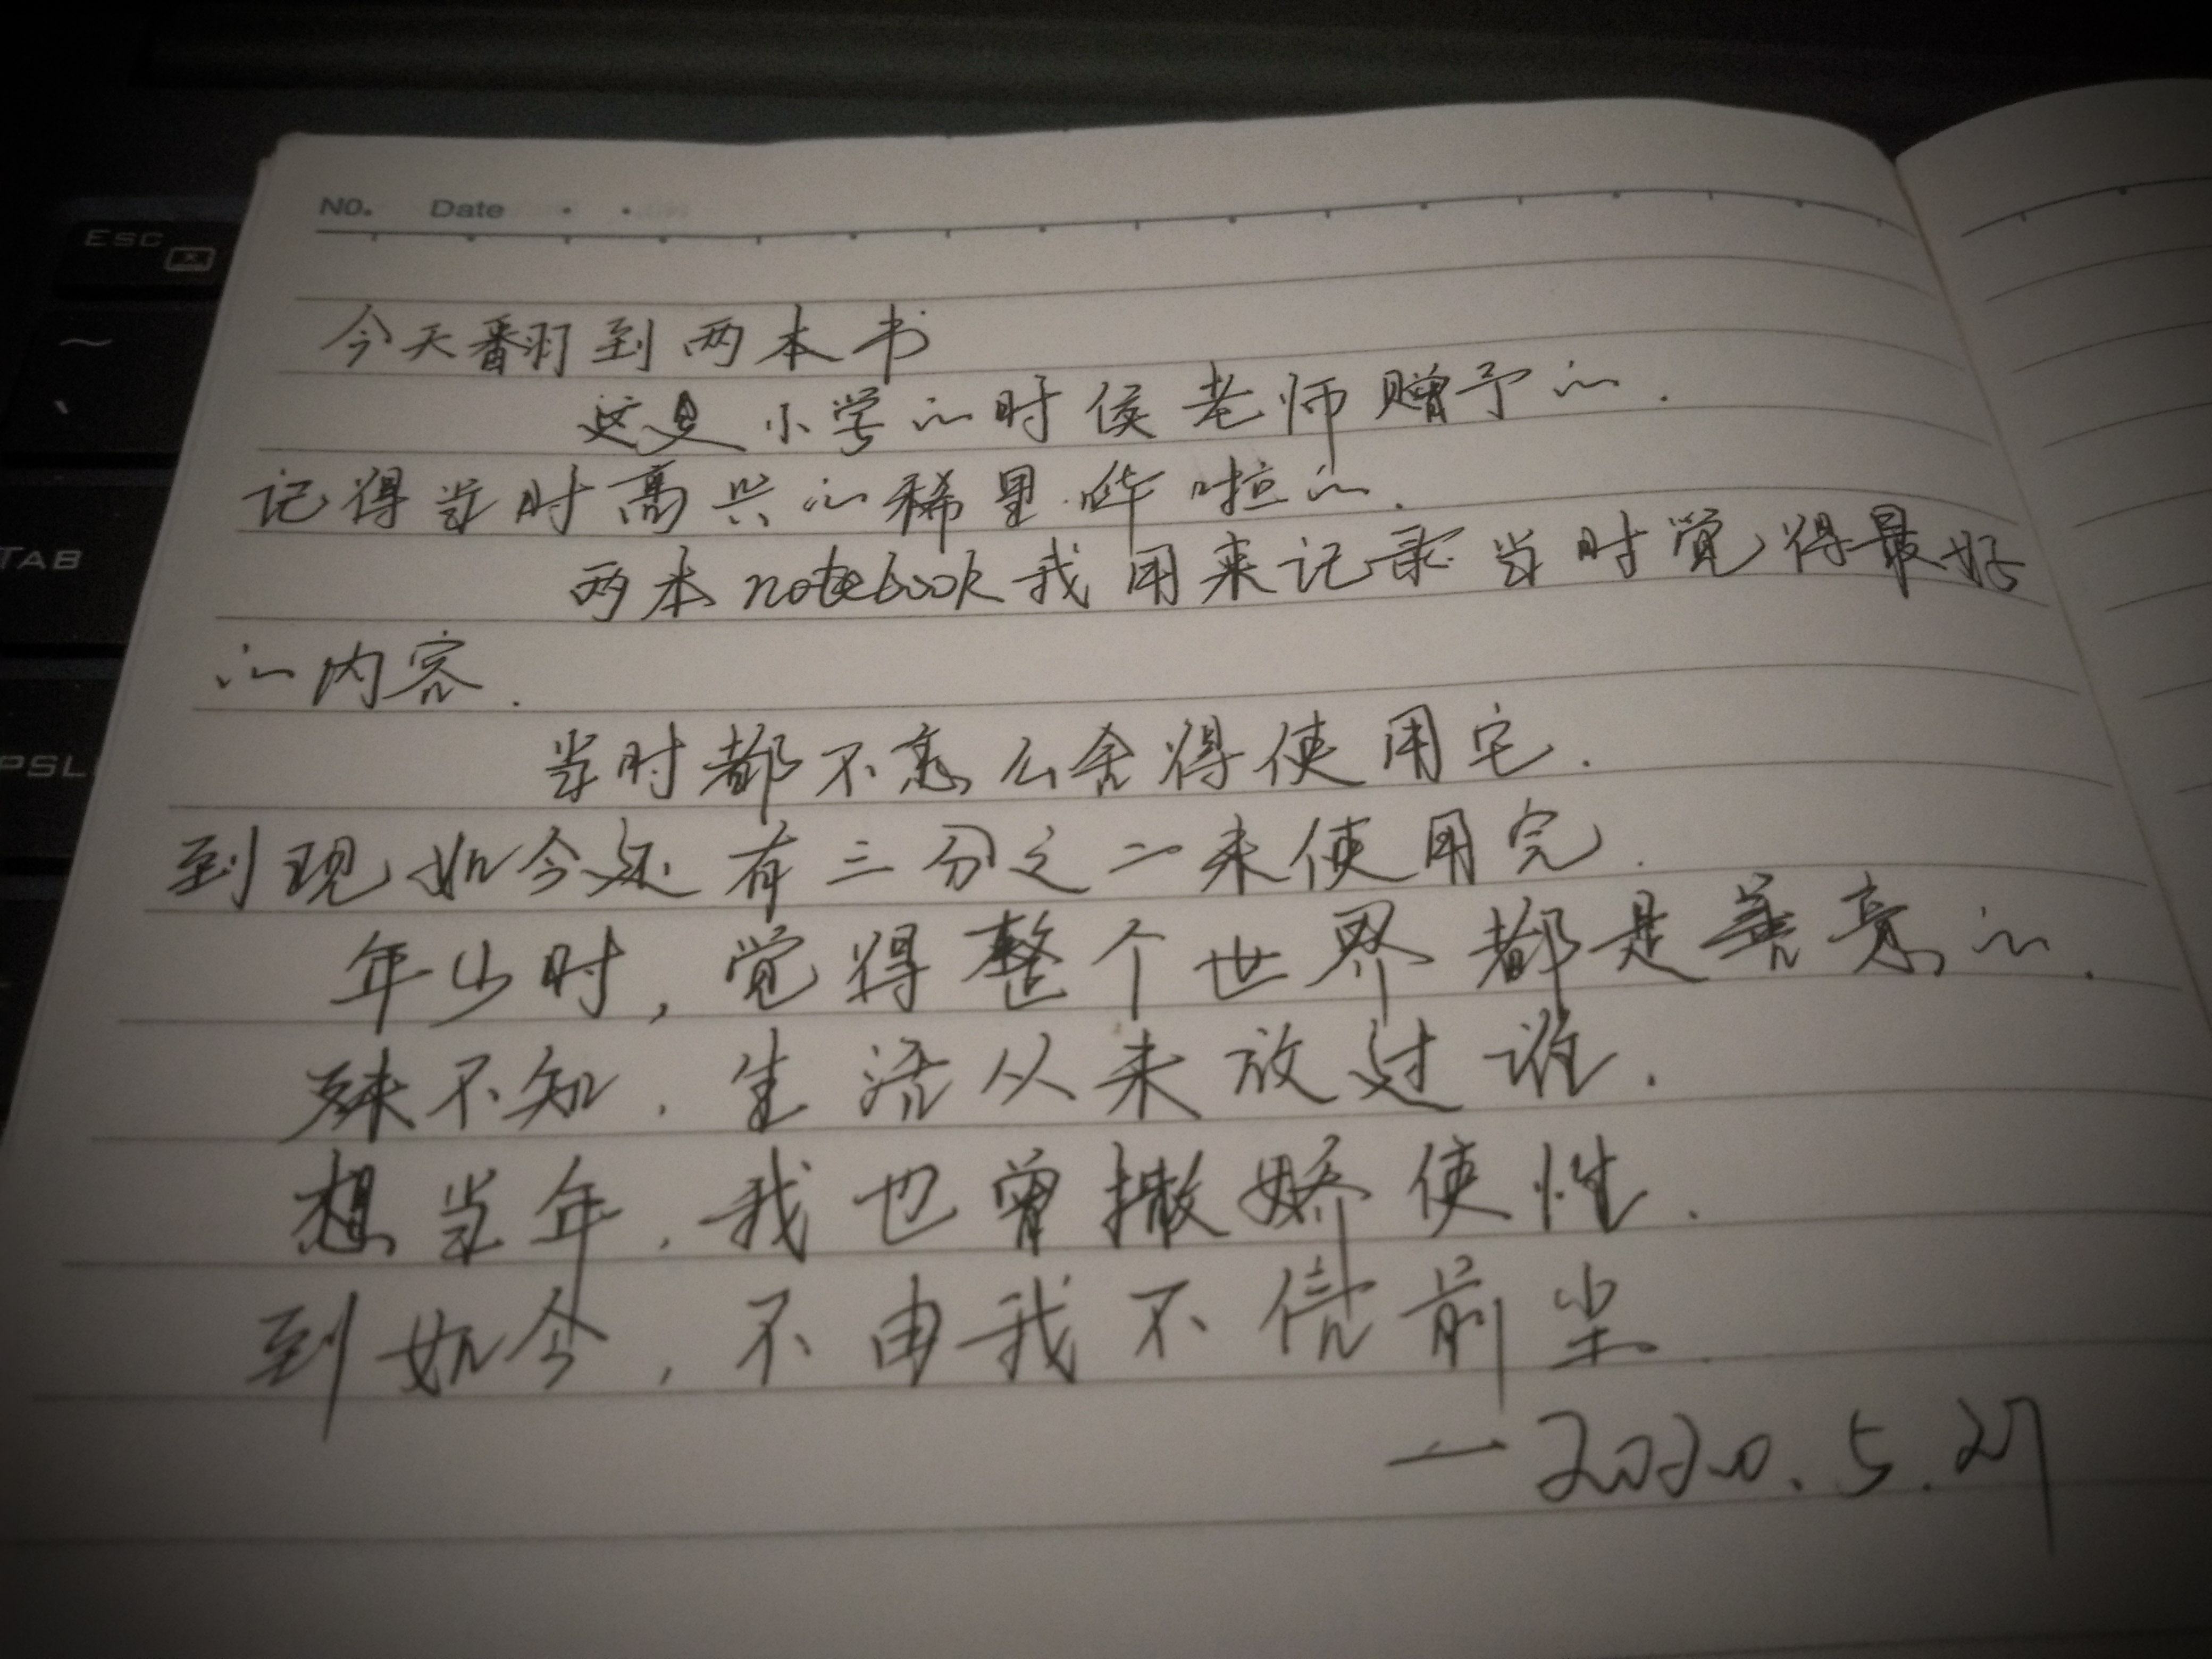 NO. Date
ESC
~
、
TAB
PSL
今天翻到两本书
这是小学的时候老师赠予的.
记得当时高兴的稀里哗啦的.
两本notebook我用来记录当时觉得最好
的内容.
当时都不怎么舍得使用它.
到现如今还有三分之二未使用完.
年少时,觉得整个世界都是善意的.
殊不知.生活从未放过谁.
想当年.我也曾撒娇使性.
到如今,不由我不信前尘.
—2020.5.27